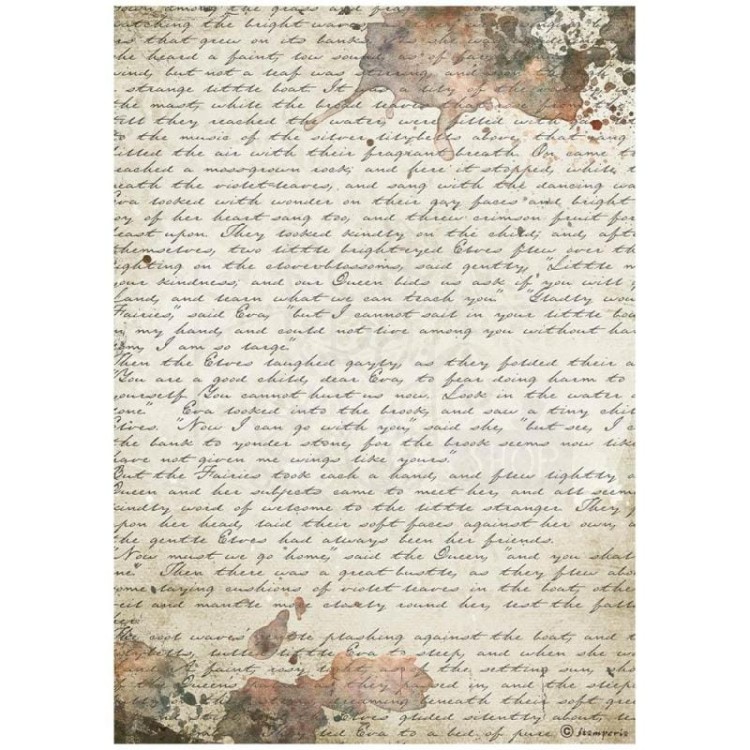 down among the bright waves
watching the bright waves
s that grew on its banks, she was
he heard a faint, low sound, as of far
wind, but not a leaf was stirring, and soon
strange little boat. It lily of the
the mast, while the broad leaves
till they reached the water, were filled with
to the music of the silver lilybells above, that rang
filled the air with their fragrant breath. On came t
eached a moss-grown rock; and here it stopped, while t
eath the violet-leaves, and sang with the dancing wa
Eva looked with wonder on their gay faces and bright
oy of her heart sang too, and threw crimson fruit for
east upon. They looked kindly on the child, and, afte
themselves, two little bright-eyed Elves flew over th
ighting on the clover-blossoms, said gently, "Little m
our kindness; and our Queen bids us ask if you will
Land, and learn what we can teach you." "Gladly wou
Fairies," said Eva, "but I cannot sail in your little boa
n my hand, and could not live among you without har
om, I am so large."
Then the Elves laughed gayly, as they folded their a
"You are a good child, dear Eva, to fear doing harm to
yourself. You cannot hurt us now. Look in the water a
one." Eva looked into the brook, and saw a tiny chil
Elves. "Now I can go with you," said she, "but see, I c
the bank to yonder stone, for the brook seems now like
have not given me wings like yours."
But the Fairies took each a hand, and flew lightly o
Queen and her subjects came to meet her, and all seem
kindly word of welcome to the little stranger. They p
pon her head, laid their soft faces against her own, a
the gentle Elves had always been her friends.
"Now must we go home," said the Queen, "and you shal
ne." Then there was a great bustle, as they flew abo
ome laying cushions of violet leaves in the boat, othe
eil and mantle more closely round her, lest the fall
her
The cool waves' gentle plashing against the boat, and t
lilybells, lulled little Eva to sleep, and when she wo
land. A faint, rosy light of the setting sun, sho
the Queen's as they passed in, and the sleep
dreaming beneath their soft gr
and Elves glided silently about, le
they led Eva to a bed of pure
SHOP
© Stamperia